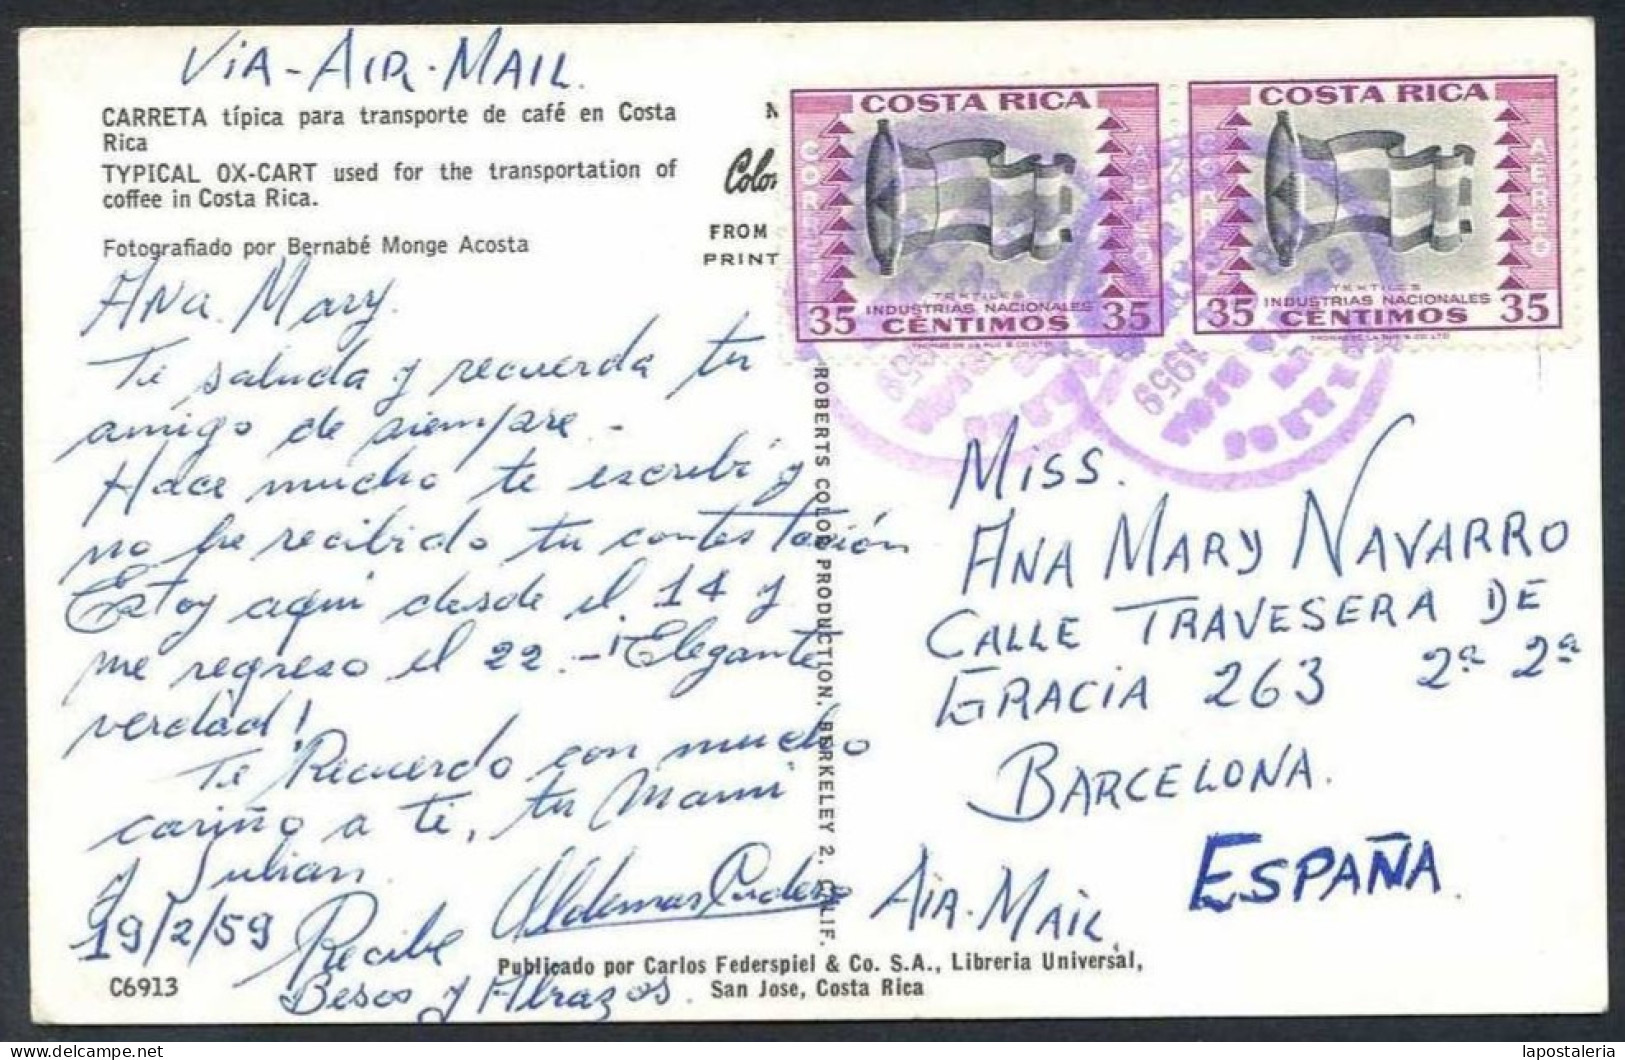 VIA-AIR-MAIL.
CARRETA típica para transporte de café en Costa
Rica
TYPICAL OX-CART used for the transportation of
coffee in Costa Rica.
Fotografiado por Bernabé Monge Acosta
Ana Mary.
Te saluda y recuerda tu
amigo de siempre-
Hace mucho te escribí y
no he recibido tu contestación
Estoy aqui desde el 14 y
me regreso el 22.-¡Elegante
verdad!
Te Recuerdo con mucho
cariño a ti, tu Mami
y Julian.
19/2/59
Recibe
Besos y Abrazos.
C6913
FROM
PRINT
COSTA RICA
CORREO
AEREO
TEXTILES
INDUSTRIAS NACIONALES
35 CÉNTIMOS 35
THOMAS DE LA RUE & CO. LTD.
COSTA RICA
CORREO
AEREO
TEXTILES
INDUSTRIAS NACIONALES
35 CÉNTIMOS 35
THOMAS DE LA RUE & CO. LTD
1959
1959
ROBERTS COLOR PRODUCTION, BERKELEY 2, CALIF.
MISS.
ANA MARY NAVARRO
CALLE TRAVESERA DE
GRACIA 263 2ª 2ª
BARCELONA.
ESPAÑA.
AIR-MAIL,
Publicado por Carlos Federspiel & Co. S.A., Libreria Universal,
San Jose, Costa Rica
Delcampe.net
lapostaleria